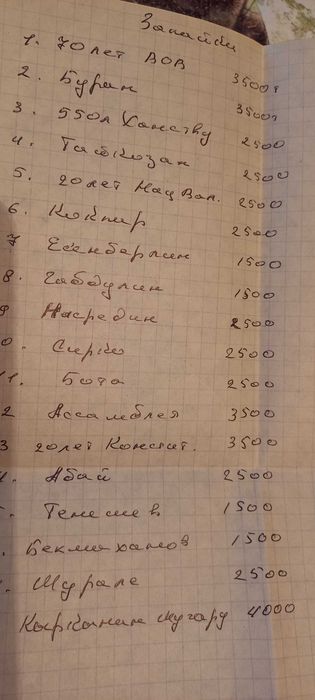 Запайки
1. 70 лет ВОВ 3500т
2. Буран 3500т
3. 550л Ханству 2500
4. Тайказан 2500
5. 20 лет Нац Вал. 2500
6. Кокпар 2500
7 Есенберлин 1500
8. Габдулин 1500
9 Насредин 2500
0. Сирко 2500
11. Бота 2500
2 Ассамблея 3500
3 20 лет Констит. 3500
Абай 2500
Тенишев 1500
Бекмаханов 1500
Шурале 2500
Кыркынан шугару 4000